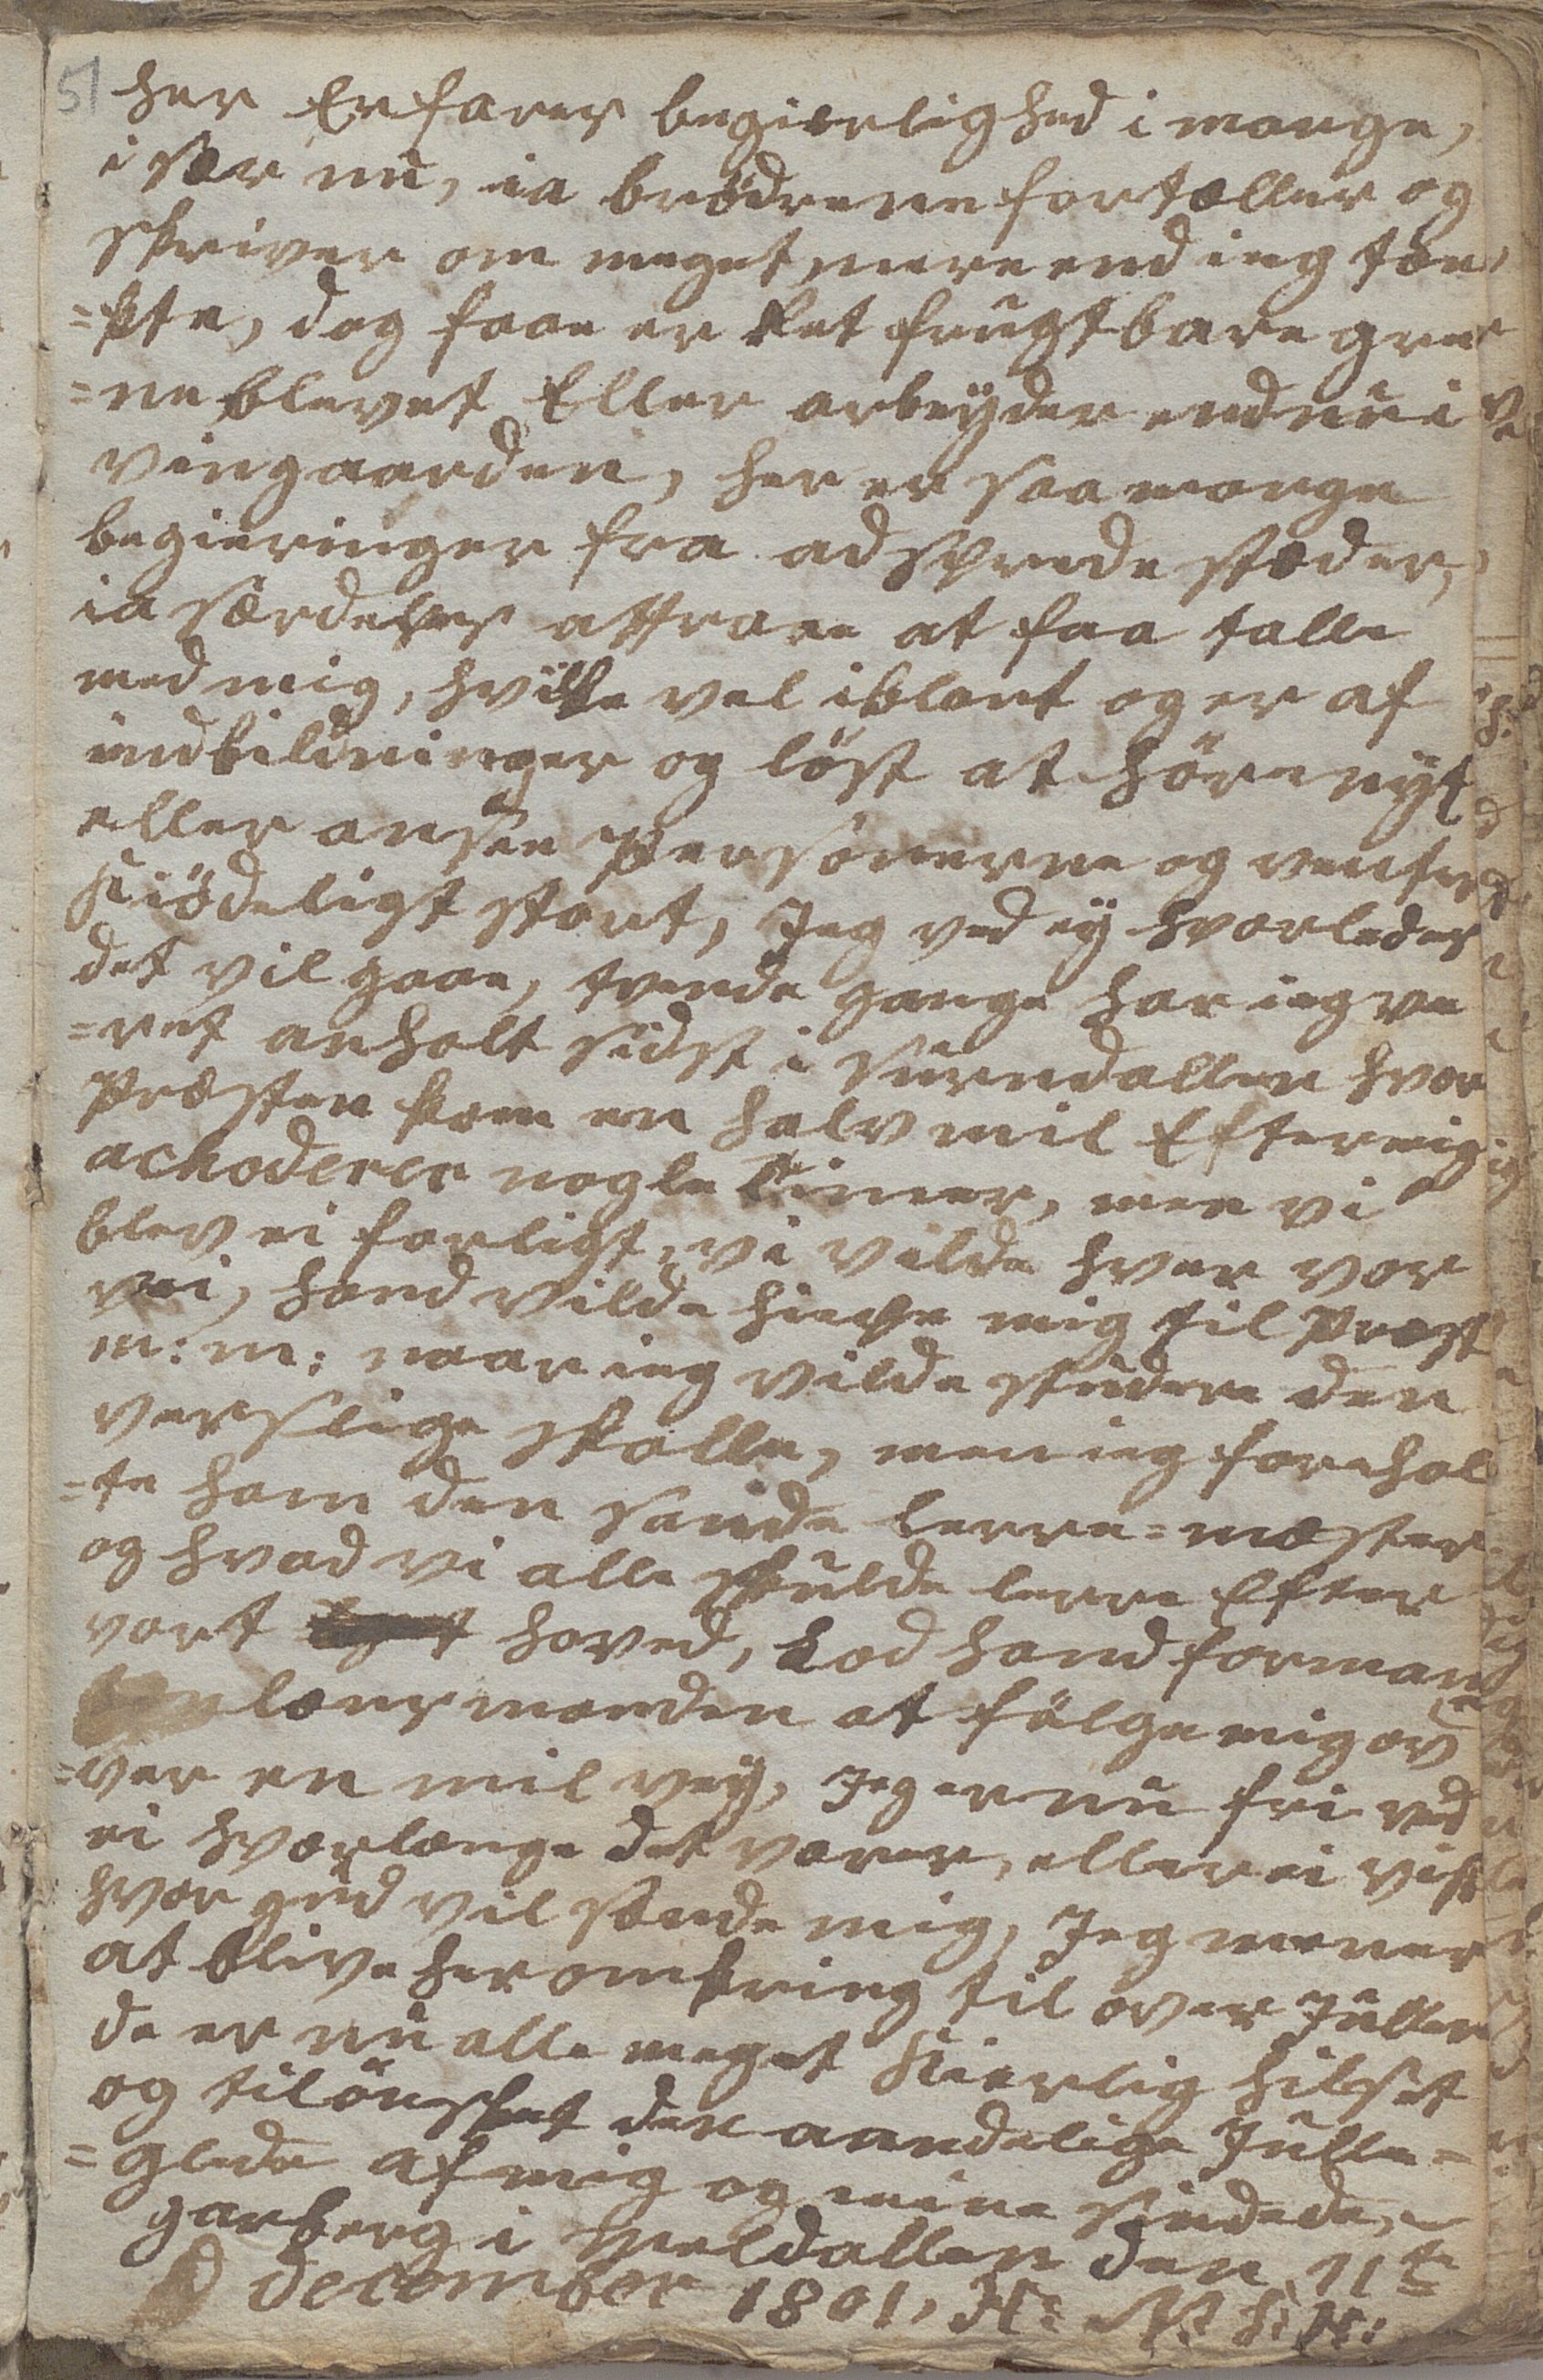 51 her Erfares begierlighed i mange,
i sær nu, ia brødrene fortæller og
skriver om meget mere end ieg tæn
=kte, dog faae er let frugtbare gre
=ne blevet Eller arbeyder endnu i
vingaarden, her er saa mange
begieringer fra adsprede stæder,
ia særdeles attraae at faa talle
med mig, hvilke vel iblant og er af
indbildninger og løst at høre nyt
eller ansee Personerne og
kiødeligt stort, Jeg ved ey hvorledes
det vil gaae, tvende gange har ieg væ
=ret anholt sidst i Surendallen hvor
Præsten kom en halv mil Efter mig
ackoderer nogle timer, men vi
blev ei forligt, vi vilde hver vor
vei, hand vilde hielpe mig til Præst
m: m: naar ieg vilde studere den
verslige skolle, men ieg forehol
=te ham den sande lerre=mæster
og hvad vi alle skulde lerre Efter
vort hoved, Lod hand forman
lensmanden at følge mig ov
=ver en mil vey, Jeg er nu fri ved
ei hvorlænge det varer, eller ei vist
hvor gud vil sende mig, Jeg mener
at blive her omkring til over Jullen
da er nu alle meget kierlig hilset
og tilønsket den aandelige Julle=
=glede af mig og mine sindede,
garberg i Meldallen den 11te
December 1801, H: N: H: